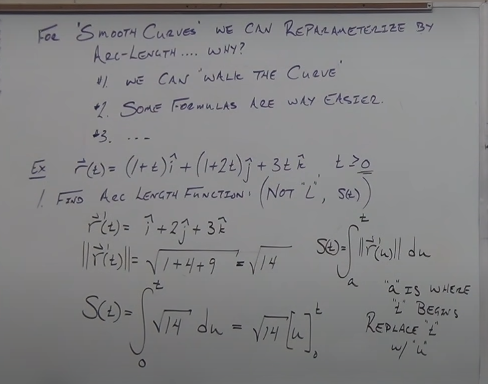 FOR "SMOOTH CURVES" WE CAN REPARAMETERIZE BY
ARC-LENGTH.... WHY?
#1. WE CAN "WALK THE CURVE"
#2. SOME FORMULAS ARE WAY EASIER.
#3. ...
Ex r⃗(t) = (1+t)î + (1+2t)ĵ + 3t k̂ t ≥ 0
1. FIND ARC LENGTH FUNCTION: (NOT "L", S(t))
r⃗'(t) = î + 2ĵ + 3k̂
||r⃗'(t)|| = √(1+4+9) = √14
S(t) = ∫ₐᵗ ||r⃗'(u)|| du
S(t) = ∫₀ᵗ √14 du = √14 [u]₀ᵗ
"a" IS WHERE
"t" BEGINS
REPLACE "t"
W/ "u"